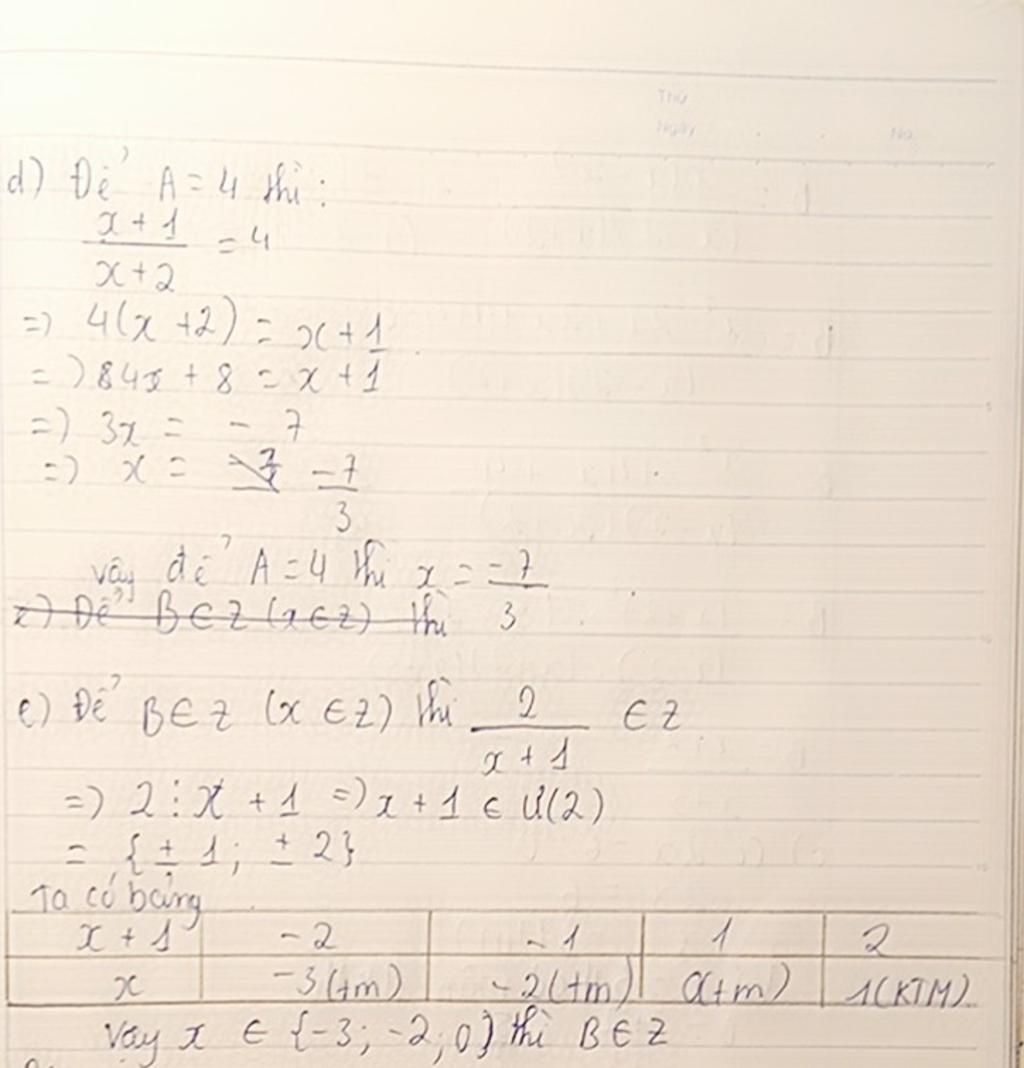 Thứ
Ngày
No.
d) Để A = 4 thì:
x + 1 / x + 2 = 4
=) 4(x + 2) = x + 1
=) 84x + 8 = x + 1
=) 3x = - 7
=) x = -7 / 3
vậy để A = 4 thì x = -7 / 3
Để B ∈ Z (x ∈ Z) thì
e) Để B ∈ Z (x ∈ Z) thì 2 / x + 1 ∈ Z
=) 2 ⋮ x + 1 =) x + 1 ∈ Ư(2)
= {± 1; ± 2}
Ta có bảng
x + 1 -2 -1 1 2
x -3(tm) -2(tm) 0(tm) 1(KTM)
Vậy x ∈ {-3; -2; 0} thì B ∈ Z